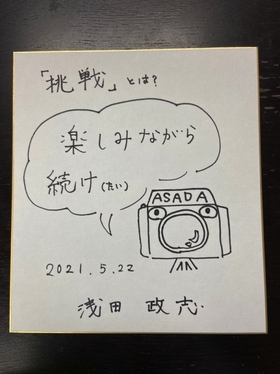 「挑戦」とは?
楽しみながら
続け(たい)
ASADA
2021.5.22
浅田 政志